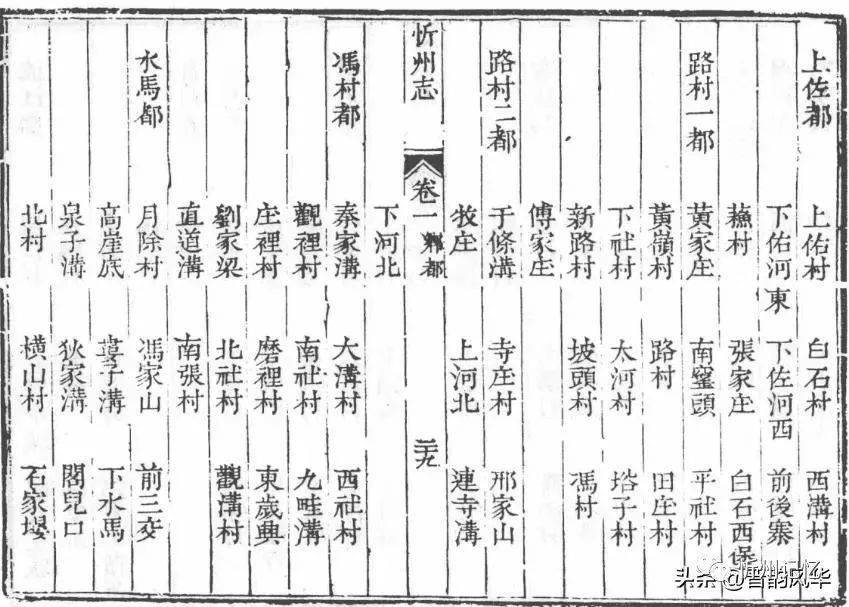 上佐都 上佑村 白石村 西溝村
下佑河東 下佐河西 前後寨
蘓村 張家庄 白石西堡
路村一都 黃家庄 南窰頭 平社村
黃嶺村 路村 田庄村
下社村 太河村 塔子村
新路村 坡頭村 馮村
傅家庄
路村二都 于條溝 寺庄村 邢家山
牧庄 上河北 連寺溝
忻州志 卷一 鄉都 三十九
下河北
馮村都 秦家溝 大溝村 西社村
觀裡村 南社村 九畦溝
庄裡村 磨裡村 東歲興
劉家梁 北社村 觀溝村
直道溝 南張村
水馬都 月除村 馮家山 前三交
高崖底 溝 下水馬
泉子溝 狄家溝 閣兒口
北村 橫山村 石家堰
头条 @晋韵风华
忻州记忆